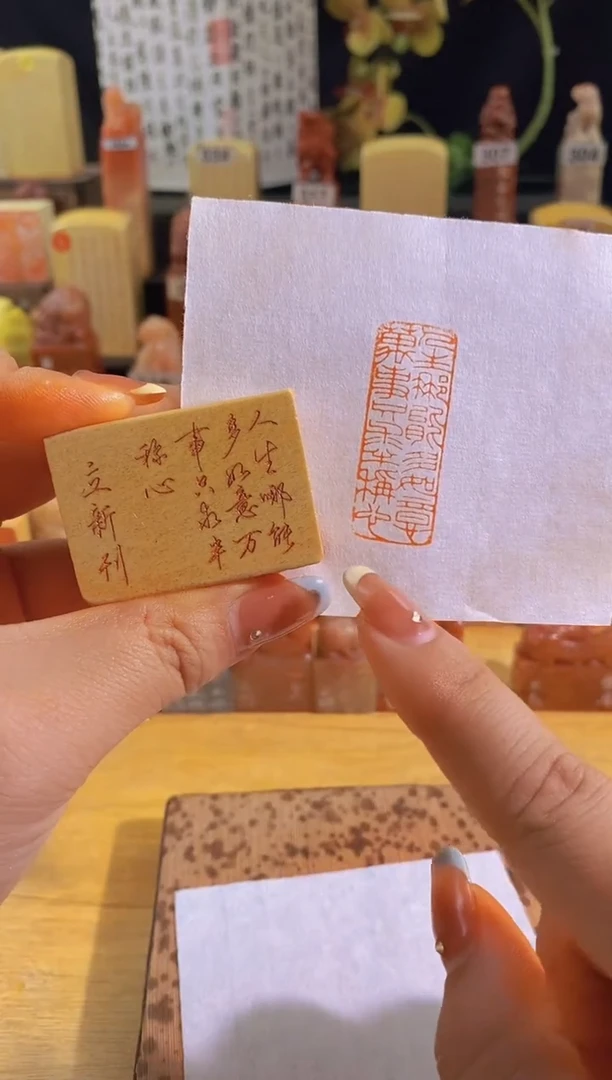 人生哪能
多如意万
事只求半
称心
立新刊
人生哪能多如意
萬事只求半稱心
307